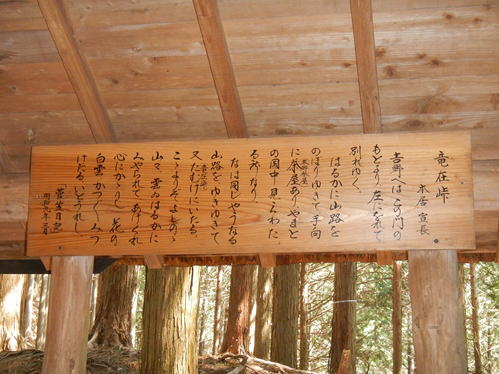 竜在峠
本居宣長
吉野へはこの門の
もとより左にをれて
別れゆく
はるかに山路を
のぼりゆきて手向
に茶屋ありやまと
の国中見えわた
る所なり
なほ同じやうなる
山路をゆきゆきて
又たむけにいたる
こゝよりぞよしのゝ
山々雲ゐはるかに
みやられてあけくれ
心にかゝりし花の
白雲かつかつみつ
けたるいとうれし
菅笠日記